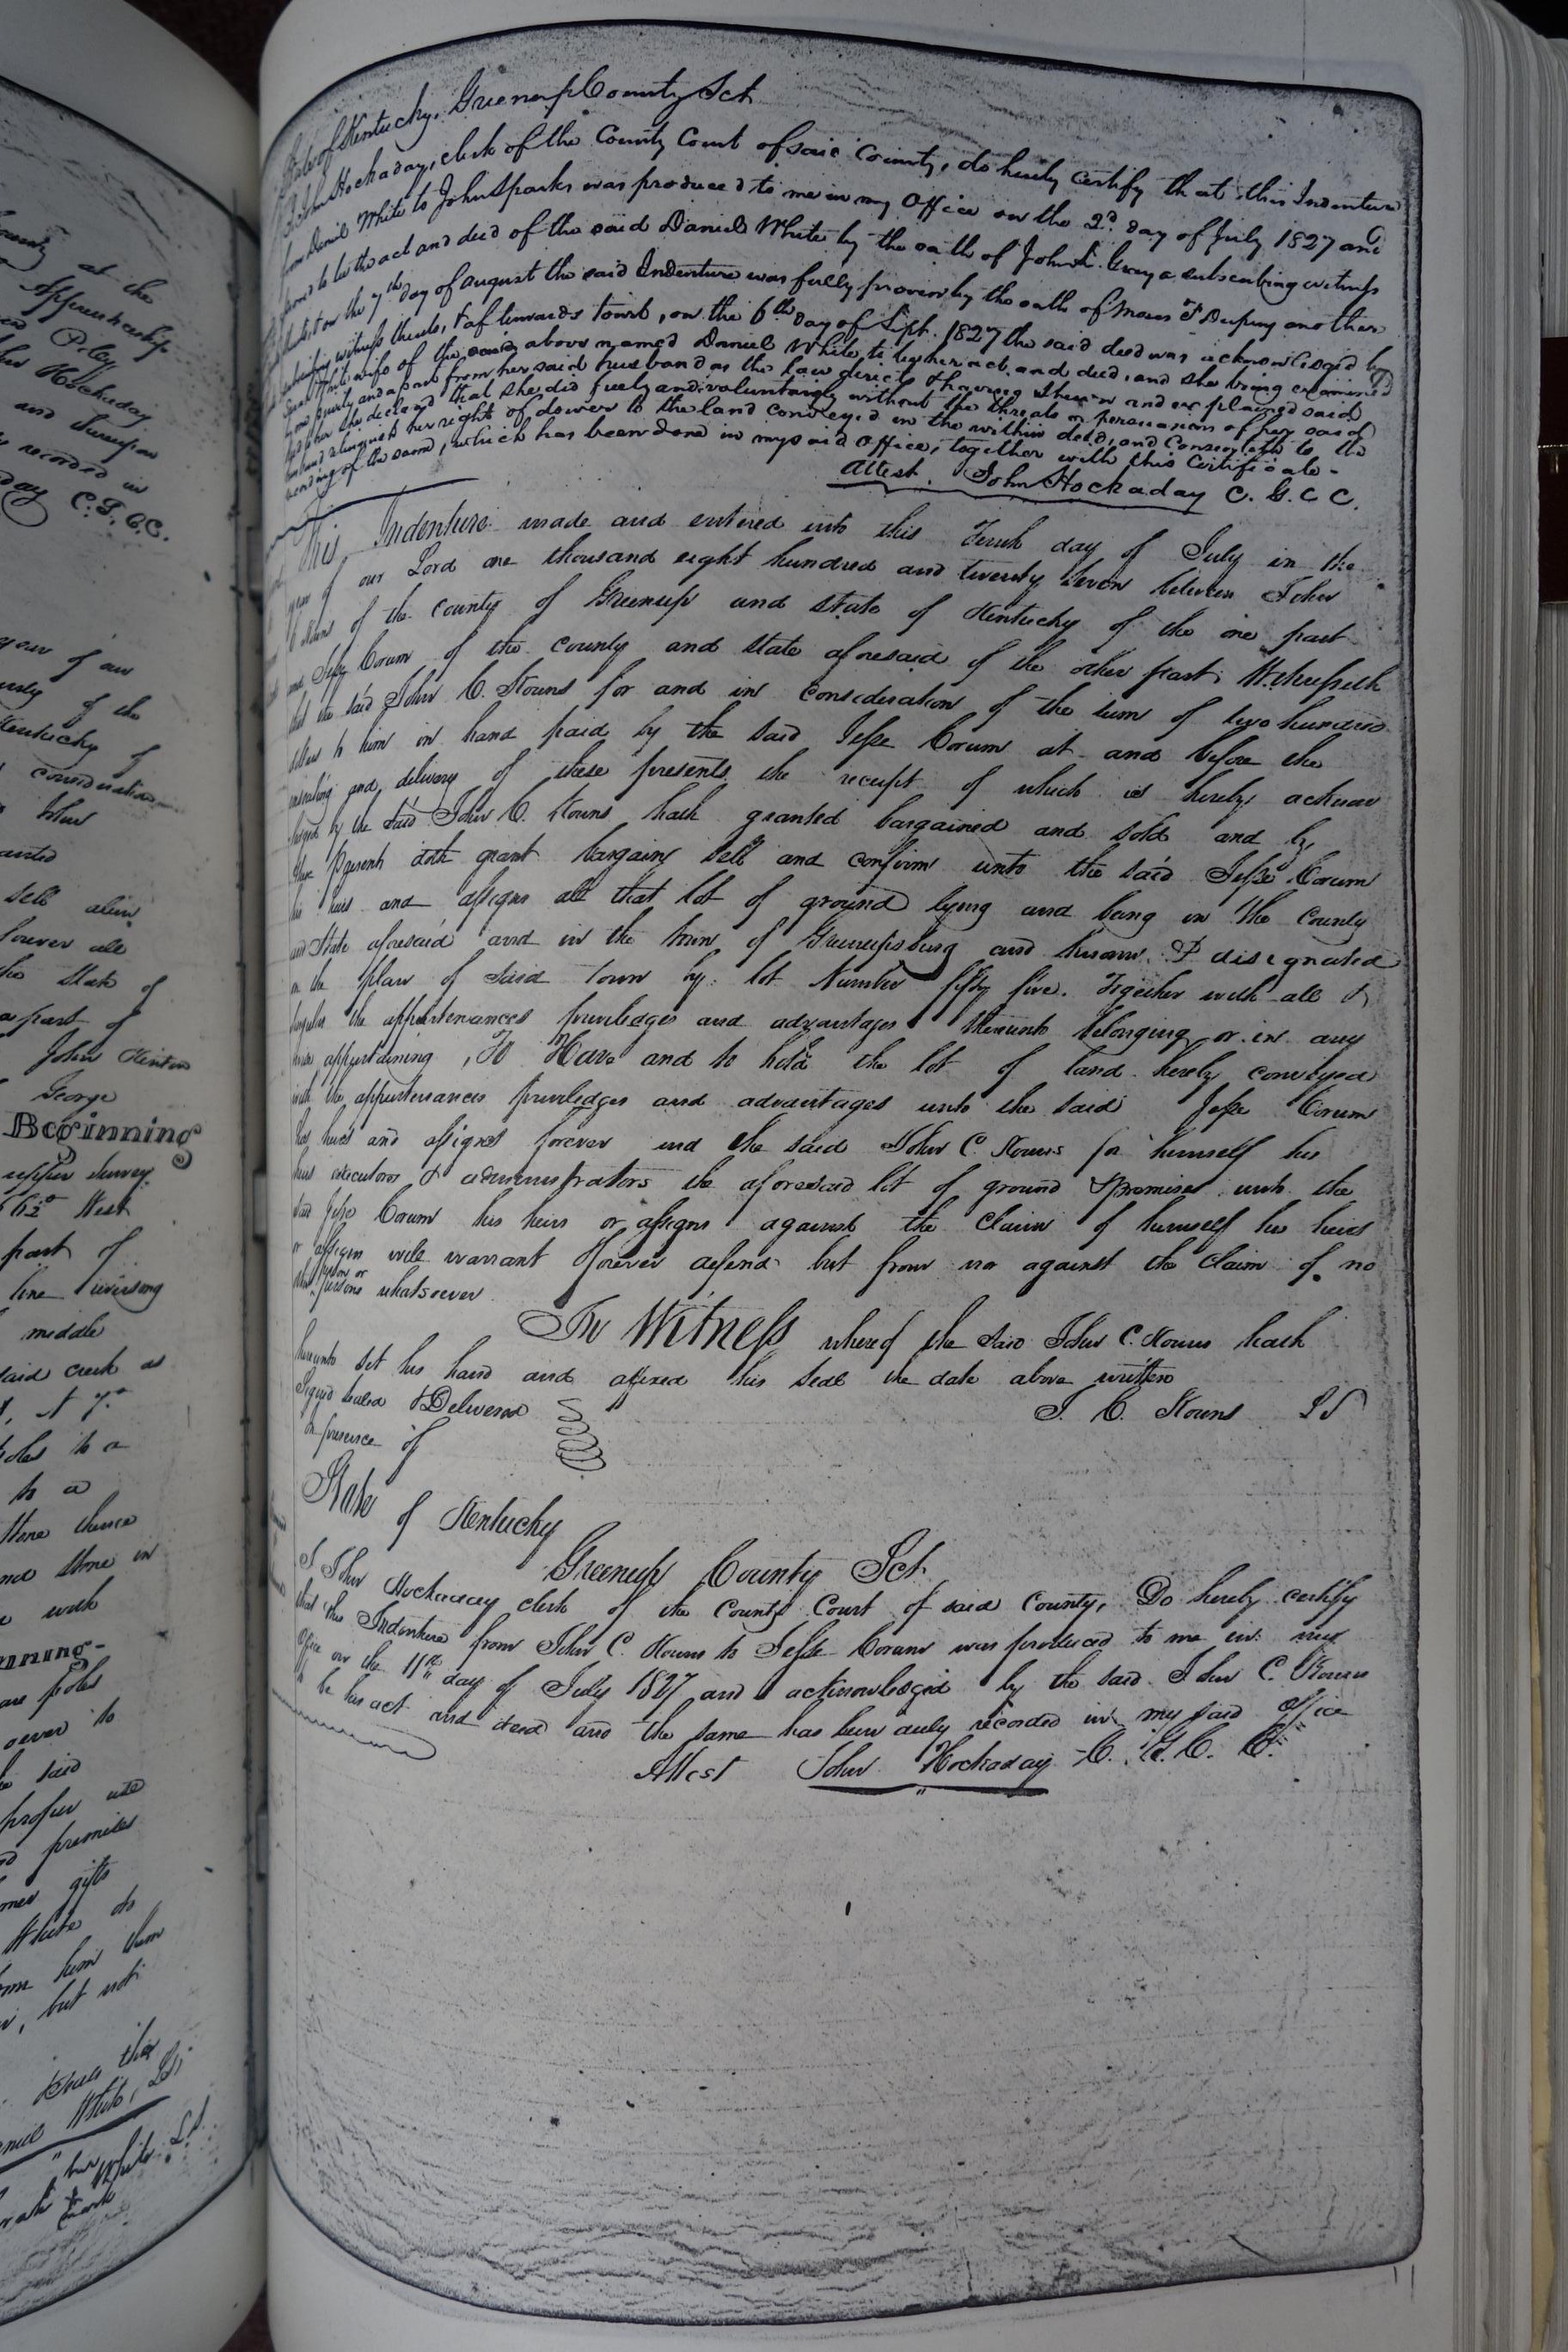 at the
Apprenticeship
Riley
John Hockaday
and thereupon
recorded in
day C.G.C.C.
year of our
of the
Kentucky of
consideration
John
sell alien
forever all
the State of
a part of
John Hinton
George
Beginning
upper survey
62° West
part of
line
middle
said creek as
N 7°
poles to a
to a
Stone thence
Stone in
with
poles
over to
said
proper use
premises
gifts
White do
him them
but not
White, LS
her
White LS
mark
State of Kentucky, Greenup County Sct
I John Hockaday, clerk of the County Court of said County, do hereby certify that this Indenture
from Daniel White to John Sparks was produced to me in my Office on the 2d. day of July 1827 and
proved to be the act and deed of the said Daniel White by the oath of John L. Gray a subscribing witness
on the 7th day of august the said Indenture was fully proven by the oath of another
subscribing witness thereto, & afterwards towit, on the 6th day of Sept. 1827 the said deed was acknowledged by
wife of the said above named Daniel White to be her act, and deed, and she being examined
and apart from her said husband as the law directs & having shewn and explained said
deed to her she declared that she did freely and voluntarily without the threats or persuasions of her said
husband relinquish her right of dower to the land conveyed in the within deed, and Consenteth to the
recording of the same, which has been done in my said Office, together with this Certificate -
Attest. John Hockaday C. G. C C.
This Indenture made and entered into this Tenth day of July in the
year of our Lord one thousand eight hundred and twenty seven between John
C Kouns of the County of Greenup and State of Kentucky of the one part
and Jesse Corum of the county and State aforesaid of the other part Witnesseth
that the said John C. Kouns for and in consideration of the sum of two hundred
dollars to him in hand paid by the said Jesse Corum at and before the
ensealing and delivery of these presents the receipt of which is hereby acknow
ledged by the said John C. Kouns hath granted bargained and sold and by
these presents doth grant bargain sell and confirm unto the said Jesse Corum
his heirs and assigns all that lot of ground lying and being in the County
and State aforesaid and in the town of Greenupsburg and known & designated
on the plan of said town by lot Number fifty five. Together with all &
singular the appurtenances priviledges and advantages thereunto belonging or in any
wise appertaining, To Have and to hold the lot of land hereby conveyed
with the appurtenances priviledges and advantages unto the said Jesse Corum
his heirs and assigns forever and the said John C. Kouns for himself his
heirs executors & administrators the aforesaid lot of ground & premises unto the
said Jesse Corum his heirs or assigns against the Claim of himself his heirs
or assigns will warrant & forever defend but from nor against the Claim of no
other person or persons whatsoever
In Witness whereof the said John C. Kouns hath
hereunto set his hand and affixed his seal the date above written
Signed Sealed & Delivered
J. C. Kouns LS
in presence of
State of Kentucky
Greenup County Sct
I John Hockaday clerk of the County Court of said County, Do hereby certify
that this Indenture from John C. Kouns to Jesse Corum was produced to me in my
Office on the 11th day of July 1827 and acknowledged by the said John C. Kouns
to be his act and deed and the same has been duly recorded in my said office
Attest John Hockaday C. G. C. C.